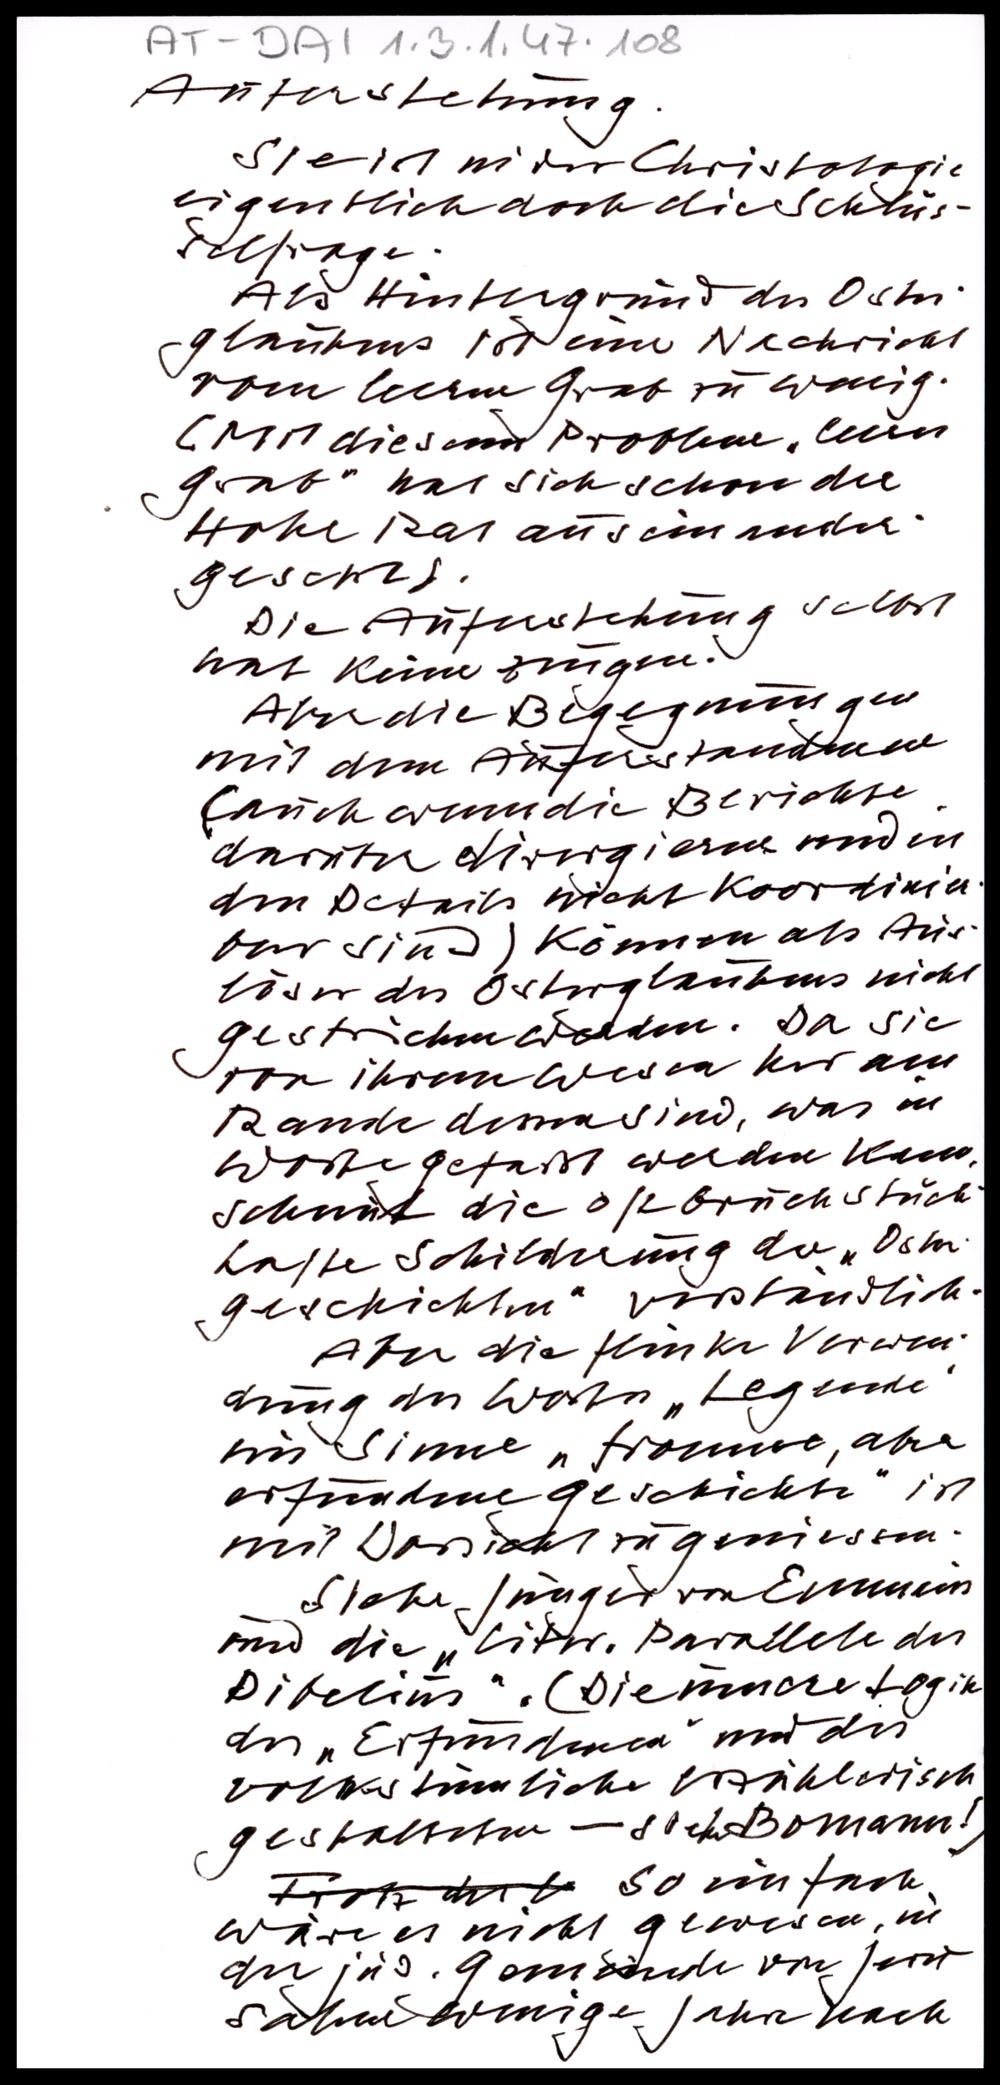 AT-DAI 1.3.1.47.108
Auferstehung.
Sie ist in der Christologie
eigentlich doch die Schlüs-
selfrage.
Als Hintergrund des Oster-
glaubens ist eine Nachricht
vom leeren Grab zu wenig.
(Mit diesem Problem „leeres
Grab" hat sich schon der
Hohe Rat auseinander-
gesetzt).
Die Auferstehung selbst
hat keine Zeugen.
Aber die Begegnungen
mit dem Auferstandenen
(auch wenn die Berichte
darüber divergieren und in
den Details nicht koordinier-
bar sind) können als Aus-
löser des Osterglaubens nicht
gestrichen werden. Da sie
von ihrem Wesen her am
Rande dessen sind, was in
Worte gefasst werden kann,
scheint die oft bruchstück-
hafte Schilderung der „Oster-
geschichten" verständlich.
Aber die flinke Verwen-
dung des Wortes „Legende"
im Sinne „fromme, aber
erfundene Geschichte" ist
mit Vorsicht zu geniessen.
Siehe Jünger von Emmaus
und die „liter. Parallele des
Dibelius". (Die innere Logik
des „Erfundenen" und des
volkstümliche erzählerisch
gestalteten — siehe Bomann!)
Trotz der so einfach
wäre es nicht gewesen, in
der jüd. Gemeinde von Jeru-
salem wenige Jahre nach